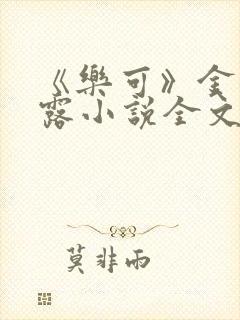 《樂可》金
露小說全文
莫非雨